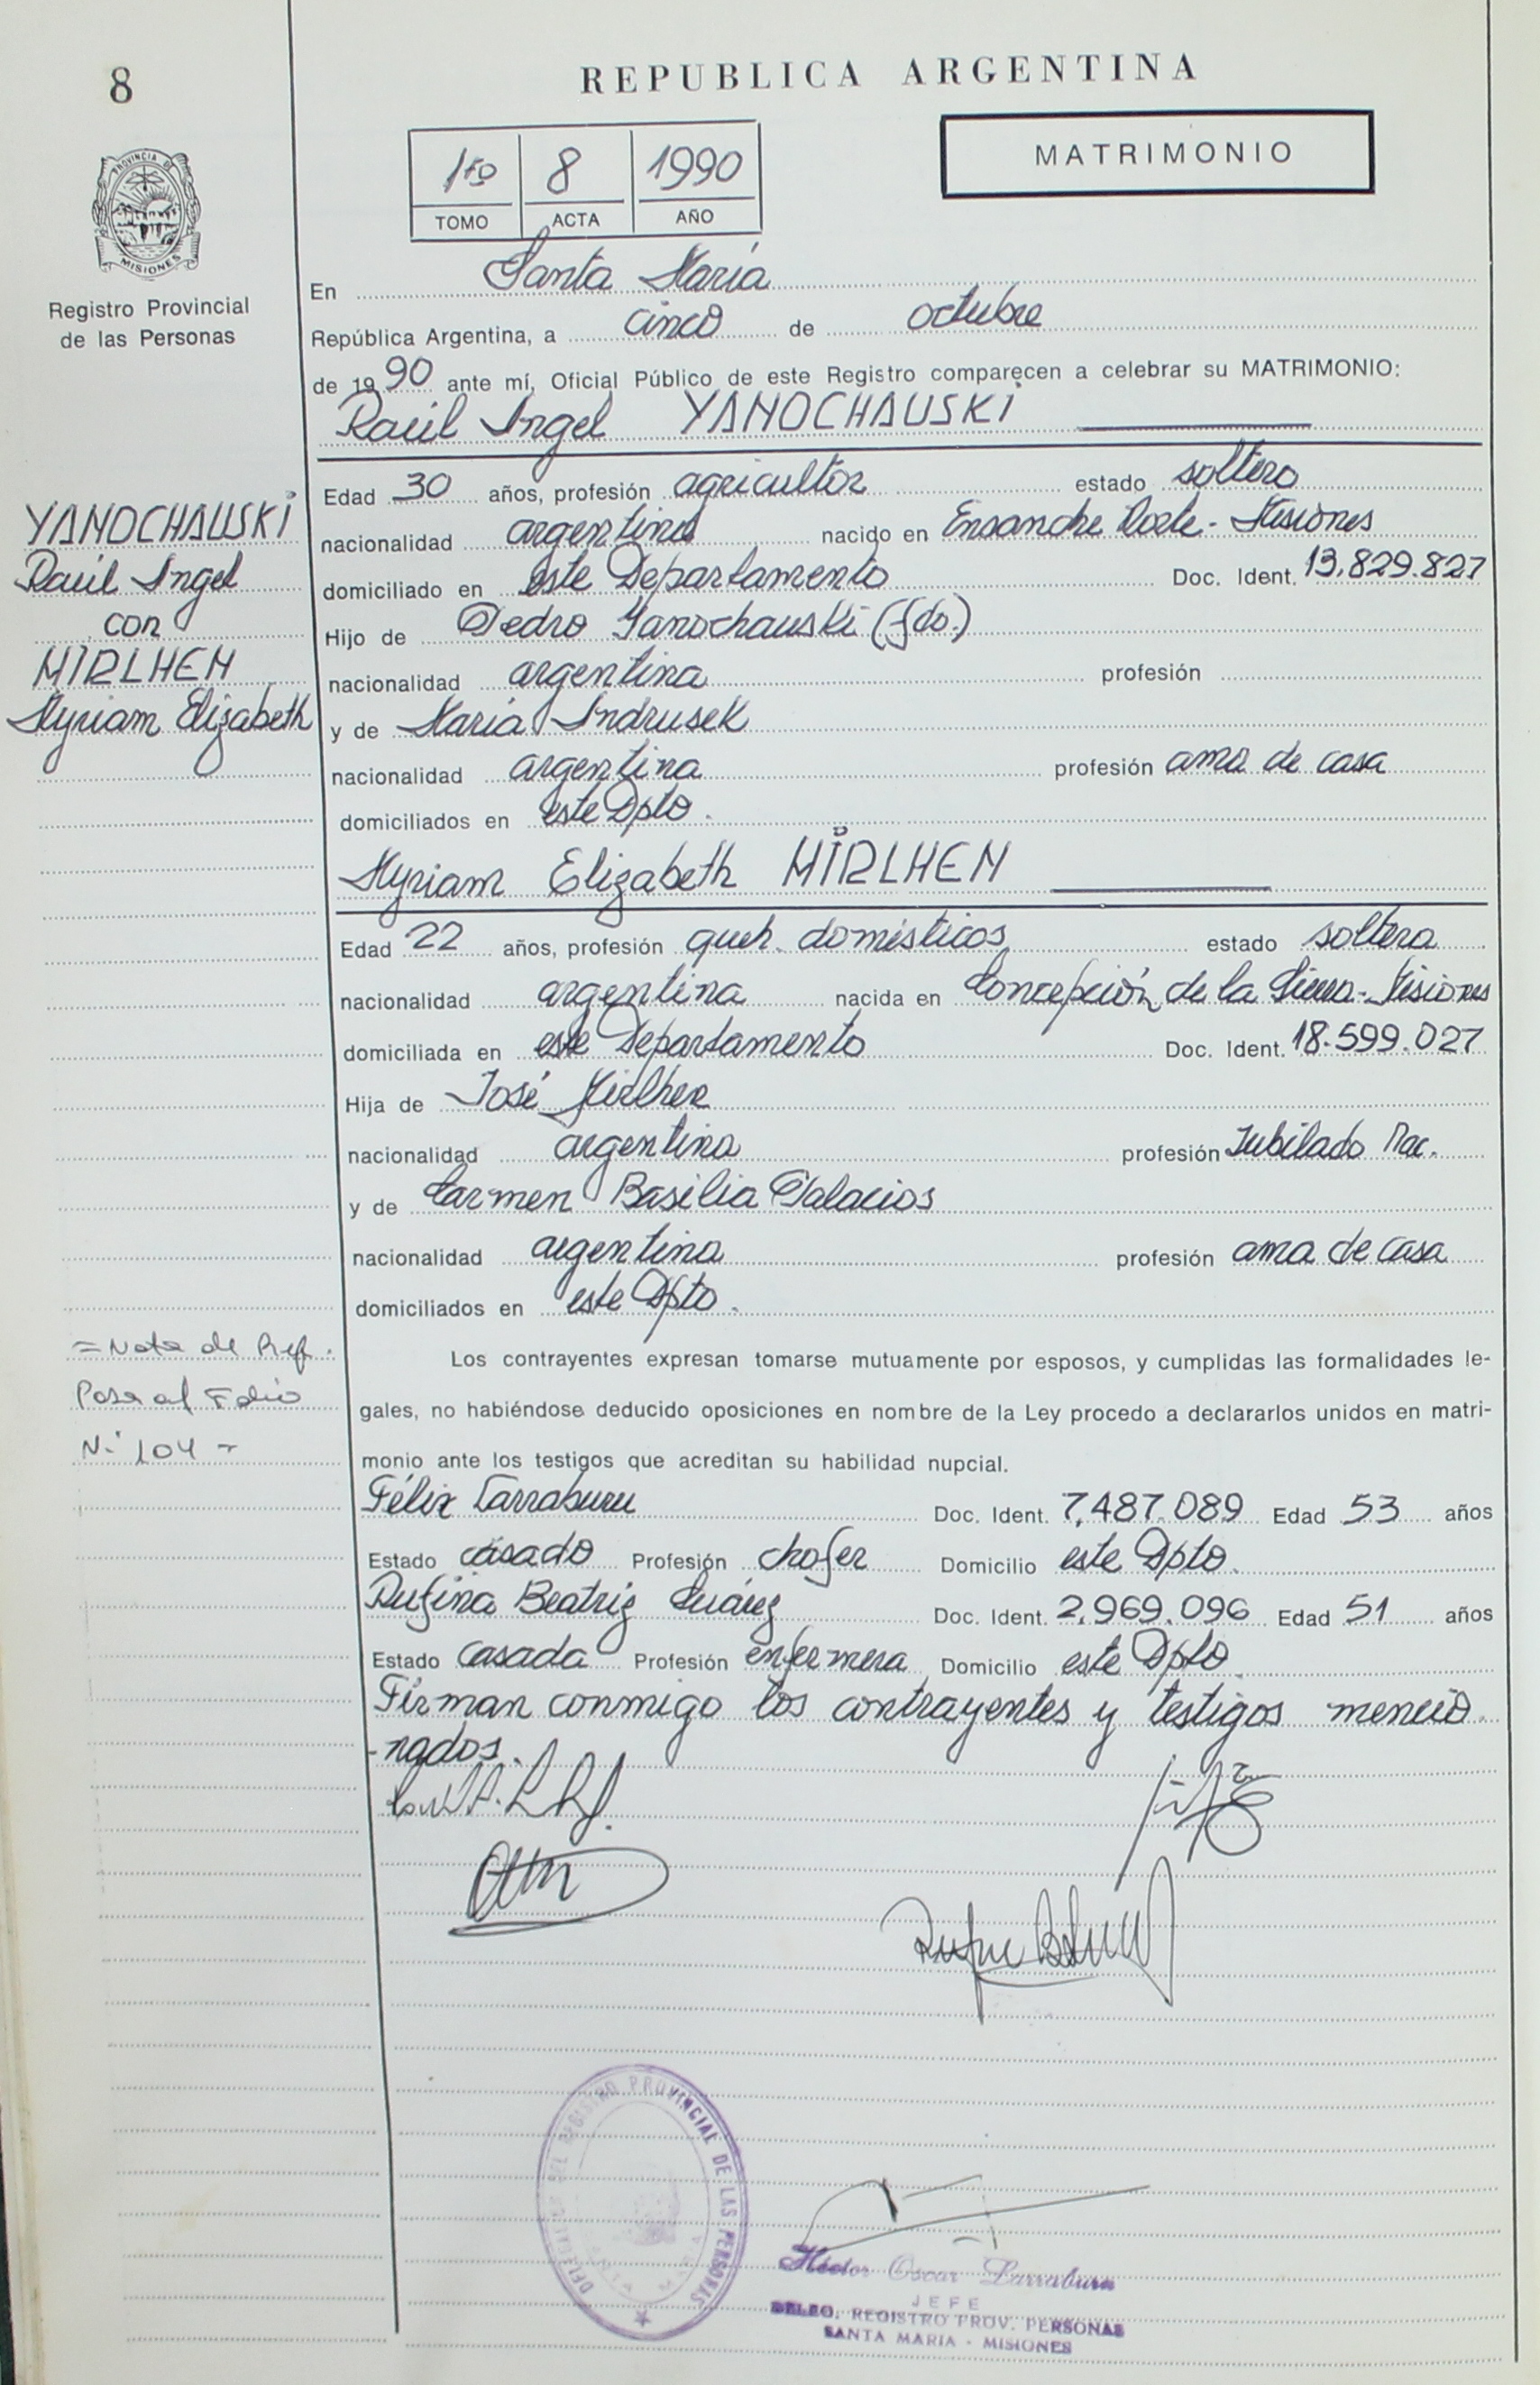 8
REPUBLICA ARGENTINA
MATRIMONIO
1ro 8 1990
TOMO ACTA AÑO
PROVINCIA DE
MISIONES
Registro Provincial
de las Personas
En Santa María
República Argentina, a cinco de octubre
de 1990 ante mí, Oficial Público de este Registro comparecen a celebrar su MATRIMONIO:
Raúl Angel YANOCHAUSKI
YANOCHAUSKI
Raúl Angel
con
MIRLHEN
Myriam Elizabeth
Edad 30 años, profesión agricultor estado soltero
nacionalidad argentina nacido en Ensanche Norte - Misiones
domiciliado en este Departamento Doc. Ident. 13.829.827
Hijo de Pedro Yanochauski (fdo.)
nacionalidad argentina profesión
y de María Andrusek
nacionalidad argentina profesión ama de casa
domiciliados en este Dpto.
Myriam Elizabeth MIRLHEN
Edad 22 años, profesión queh. domésticos estado soltera
nacionalidad argentina nacida en Concepción de la Sierra - Misiones
domiciliada en este Departamento Doc. Ident. 18.599.027
Hija de José Mirlhen
nacionalidad argentina profesión Jubilado Nac.
y de Carmen Basilia Palacios
nacionalidad argentina profesión ama de casa
domiciliados en este Dpto.
= Nota de Ref.
Pasa al Folio
N.° 104 -
Los contrayentes expresan tomarse mutuamente por esposos, y cumplidas las formalidades le-
gales, no habiéndose deducido oposiciones en nombre de la Ley procedo a declararlos unidos en matri-
monio ante los testigos que acreditan su habilidad nupcial.
Félix Larraburu Doc. Ident. 7.487.089 Edad 53 años
Estado casado Profesión chofer Domicilio este Dpto.
Rufina Beatriz Suárez Doc. Ident. 2.969.096 Edad 51 años
Estado casada Profesión enfermera Domicilio este Dpto.
Firman conmigo los contrayentes y testigos mencio
-nados.
DELEGACION DEL REGISTRO PROVINCIAL DE LAS PERSONAS
SANTA MARIA
Héctor Oscar Larraburu
JEFE
DELEG. REGISTRO PROV. PERSONAS
SANTA MARIA - MISIONES